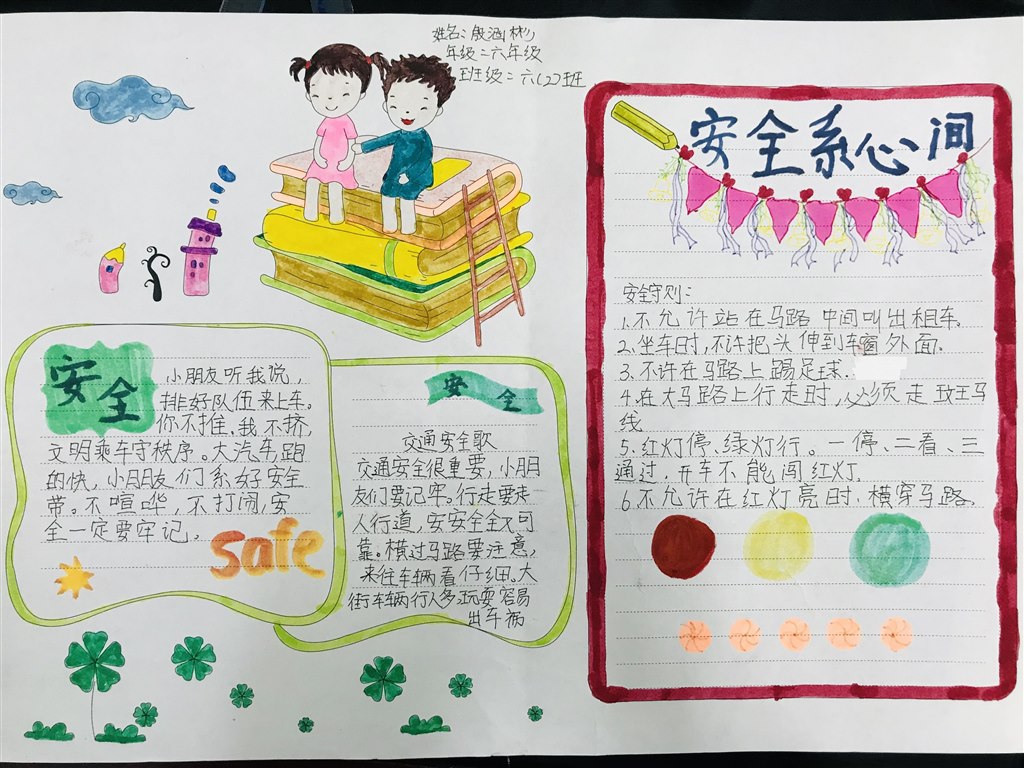 姓名:殷涵彬
年级:六年级
班级:六(2)班
安全系心间
安全守则:
1.不允许站在马路中间叫出租车。
2.坐车时,不许把头伸到车窗外面.
3.不许在马路上踢足球.
4.在大马路上行走时,必须走
线.
5.红灯停、绿灯行。一停、二看、三
通过,开车不能闯红灯.
6.不允许在红灯亮时,横穿马路.
安全
小朋友听我说,
排好队伍来上车。
你不推,我不挤,
文明乘车守秩序。大汽车,跑
的快,小朋友们系好安全
带。不喧哗,不打闹,安
全一定要牢记,
safe
安全
交通安全歌
交通安全很重要,小朋
友们要记牢。行走要走
人行道,安安全全又可
靠。横过马路要注意,
来往车辆看仔细。大
街车辆行人多,玩耍容易
出车祸